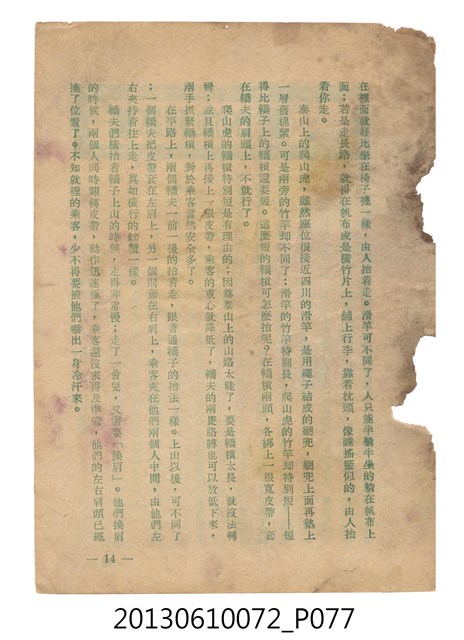 在裡面就好比坐在椅子裡一樣，由人抬着走。滑竿可不同了，人只能半躺半坐的躺在帆布上
面；若是走長路，就得在帆布或是橫竹片上，舖上行李，靠着枕頭，像睡搖籃似的，由人抬
着你走。
泰山上的爬山虎，雖然座位很接近四川的滑竿，是用繩子結成的網兜，網兜上面再墊上
一層舊棉絮。可是兩旁的竹竿却不同了：滑竿的竹竿特別長，爬山虎的竹竿却特別短——短
得比轎子上的轎槓還要短。這麼短的轎槓可怎麼抬呢？在轎槓兩頭，各綁上一根寬皮帶，套
在轎夫的肩頭上，不就行了。
爬山虎的轎槓特別短是有理由的；因爲泰山上的山路太陡了，要是轎槓太長，就沒法轉
彎；並且轎槓上再接上一根皮帶，乘客的重心就降低了，轎夫的兩隻胳膊也可以放低下來，
兩手抓緊轎槓，對於乘客當然安全多了。
在平路上，兩個轎夫一前一後的抬着走，跟普通轎子的抬法一樣。上山以後，可不同了
；一個轎夫把皮帶套在左肩上，另一個則套在右肩上，乘客夾在他們兩個人中間，由他們左
右夾持着往上走，眞如橫行的螃蟹一樣。
轎夫們橫抬着轎子上山的時候，走得非常慢；走了一會兒，又需要「換肩」。他們換肩
的時候，兩個人同時翻轉皮帶，動作迅速極了，乘客還沒來得及準備，他們的左右肩頭已經
換了位置了。不知就裡的乘客，少不得要被他們嚇出一身冷汗來。
— 14 —
20130610072_P077